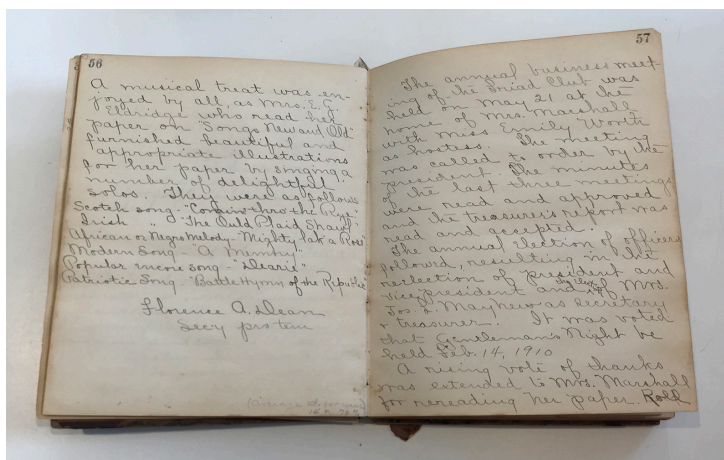 56
A musical treat was en-
joyed by all, as Mrs. E. C.
Eldridge who read her
paper on "Songs New and Old"
furnished beautiful and
appropriate illustrations
for her paper by singing a
number of delightful
solos. They were as follows
Scotch song - "Comin' thro the Rye"
Irish " - "The Ould Plaid Shawl"
African or Negro Melody - Mighty lak a Rose
Modern Song - A Memory
Popular encore song - "Dearie"
Patriotic Song - Battle Hymn of the Republic
Florence A. Dean
Secy pro tem
57
The annual business meet-
ing of the Triad Club was
held on May 21 at the
home of Mrs. Marshall
with Miss Emily Worth
as hostess. The meeting
was called to order by the
president. The minutes
of the last three meetings
were read and approved
and the treasurer's report was
read and accepted.
The annual election of officers
followed, resulting in the
reelection of president and
vice president and of Mrs.
Jos. S. Mayhew as secretary
+ treasurer. It was voted
that Gentleman's Night be
held Feb. 14, 1910
A rising vote of thanks
was extended to Mrs. Marshall
for rereading her paper. Roll